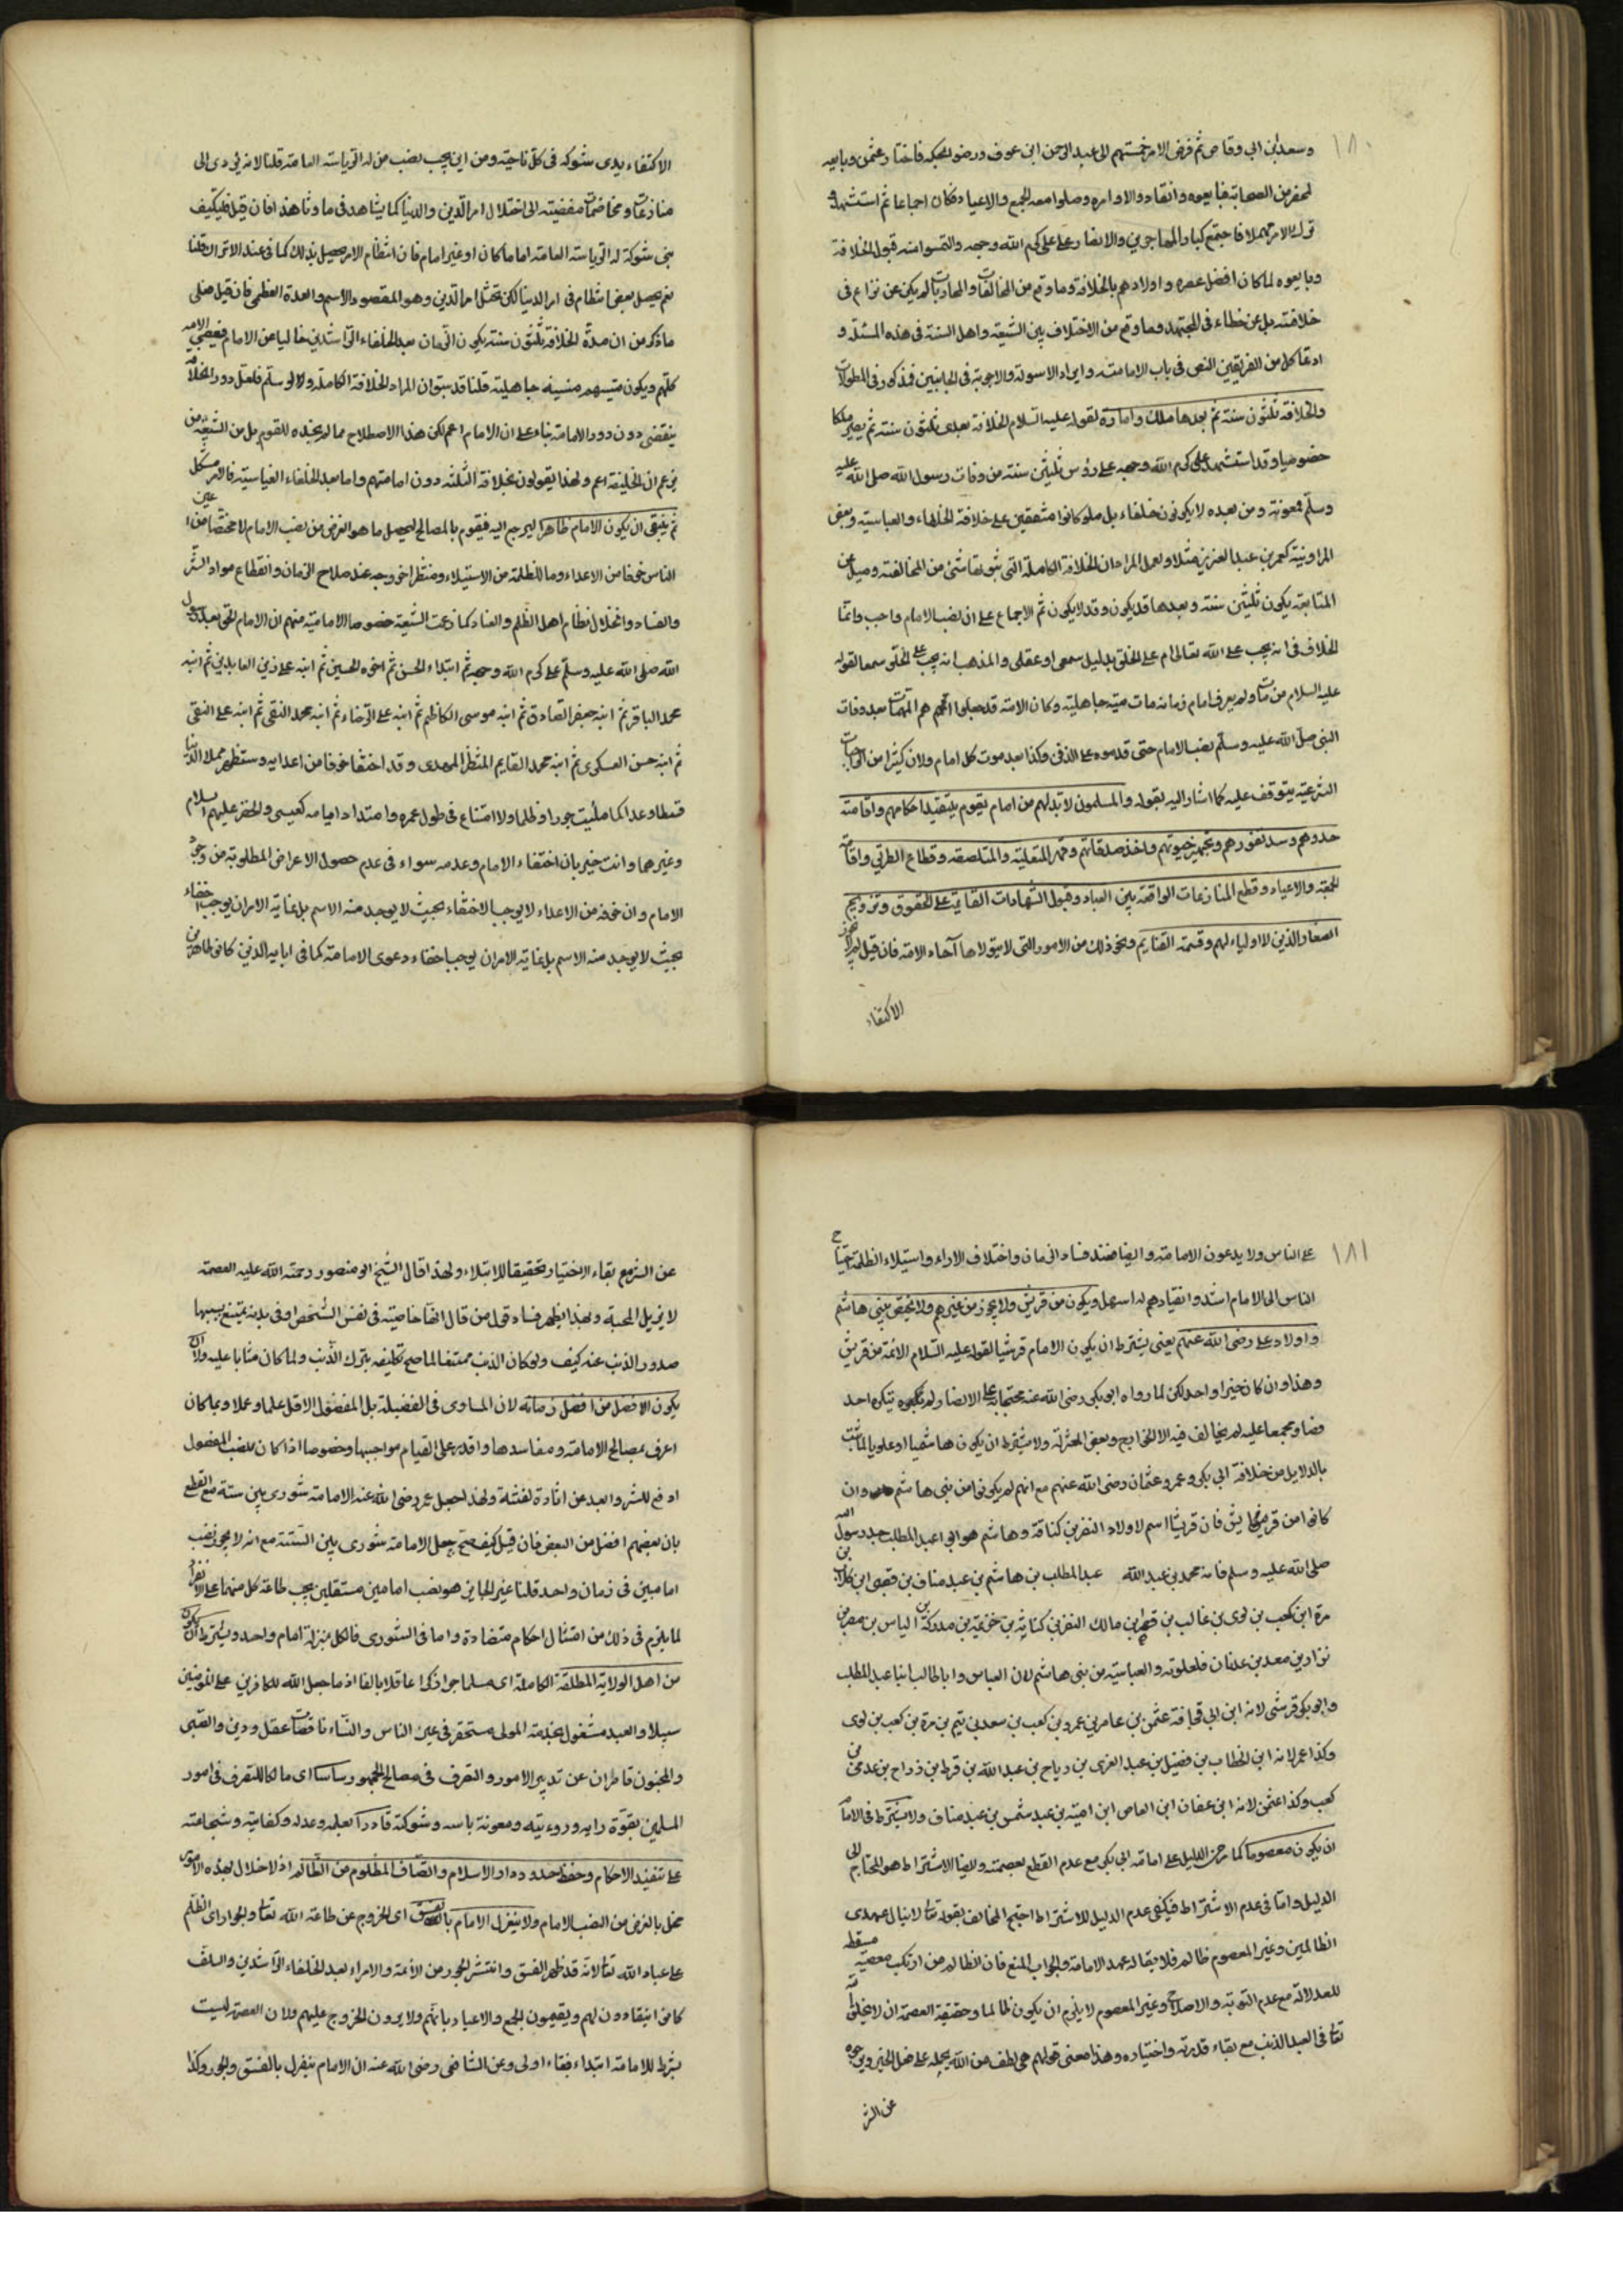 ١٨٠
وسعد بن ابي وقاص ثم فوض الامر خمستهم الى عبد الرحمن ابن عوف ورضوا بحكمه فاختار عثمن وبايعه
بمحضر من الصحابة فبايعوه وانقادوا لاوامره وصلوا معه الجمع والاعياد فكان اجماعا ثم استشهد و
ترك الامر مهملا فاجتمع كبار المهاجرين والانصار على على كرم الله وجهه والتمسوا منه قبول الخلافة
وبايعوه لما كان افضل عصره واولادهم بالخلافة وما وقع من المخالفات والمحاربات لم يكن عن نزاع فى
خلافته بل عن خطاء فى المجتهد وما وقع من الاختلاف بين الشيعة واهل السنة فى هذه المسئلة و
ادعا كل من الفريقين النص فى باب الامامة وايراد الاسولة والاجوبة فى الجانبين فمذكور فى المطولات
والخلافة ثلثون سنة ثم بعدها ملك وامارة لقوله عليه السلام الخلافة بعدى ثلثون سنة ثم يصير ملكا
عضوضيا وقد استشهد على كرم الله وجهه على رؤس ثلثين سنة من وفات رسول الله صلى الله عليه
وسلم فمعوية ومن بعده لا يكونون خلفاء بل ملوكا وامراء متفقين على خلافة الخلفاء والعباسية وبعض
المراونية كعمر بن عبد العزيز مثلا ولعل المراد ان الخلافة الكاملة التى لا يشوبها شئ من المخالفة وميل عن
المتابعة يكون ثلثين سنة وبعدها قد يكون وقد لا يكون ثم الاجماع على ان نصب الامام واجب وانما
الخلاف فى انه يجب على الله تعالى ام على الخلق بدليل سمعى او عقلى والمذهب انه يجب على الخلق سمعا لقوله
عليه السلام من مات ولم يعرف امام زمانه مات ميتة جاهلية وكان الامة قد جعلوا اهم المهمات بعد وفات
النبى صلى الله عليه وسلم نصب الامام حتى قدموه على الدفن وكذا بعد موت كل امام ولان كثيرا من الواجبات
الشرعية يتوقف عليه كما اشار اليه بقوله والمسلمون لا بد لهم من امام يقوم بتنفيذ احكامهم واقامة
حدودهم وسد ثغورهم وتجهيز جيوشهم واخذ صدقاتهم وقهر المتغلبة والمتلصصة وقطاع الطريق واقامة
الجمعة والاعياد وقطع المنازعات الواقعة بين العباد وقبول الشهادات القائمة على الحقوق وتزويج
الصغار الذين لا اولياء لهم وقسمة الغنايم ونحو ذلك من الامور التى لا يتولاها آحاد الامة فان قيل لم لا يجوز
الاكتفاء
الاكتفاء بذى شوكة فى كل ناحية ومن اين يجب نصب من له الرياسة العامة قلنا لانه يؤدى الى
منازعات ومخاصمات مفضية الى اختلال امر الدين والدنيا كما يشاهد فى ماوننا هذا فان قيل فليكتف
بذى شوكة له الرياسة العامة اماما كان او غير امام فان انتظام الامر يحصل بذلك كما فى عند الاتراك قلنا
نعم يحصل بعض انتظام فى امر الدنيا لكن تختل امر الدين وهو المقصود الاهم والعمدة العظمى فان قيل فعلى
ما ذكر من ان مدة الخلافة ثلثون سنة يكون الزمان بعد الخلفاء الراشدين خاليا عن الامام فيعصى الامة
كلهم ويكون ميتتهم ميتة جاهلية قلنا قد سبق ان المراد الخلافة الكاملة ولو سلم فلعل دور الخلافة
ينقضى دون دور الامامة بناء على ان الامام اعم لكن هذا الاصطلاح مما لم نجده للقوم بل من الشيعة من
يزعم ان الخليفة اعم ولهذا يقولون بخلافة الثلثة دون امامتهم واما بعد الخلفاء العباسية فالامر مشكل
ثم ينبغى ان يكون الامام ظاهرا ليرجع اليه فيقوم بالمصالح ليحصل ما هو الغرض من نصب الامام لا مختفيا عن اعين
الناس خوفا من الاعداء وما للظلمة من الاستيلاء ومنتظرا خروجه عند صلاح الزمان وانقطاع مواد الشر
والفساد وانحلال نظام اهل الظلم والعناد كما زعمت الشيعة خصوصا الامامية منهم ان الامام الحق بعد رسول
الله صلى الله عليه وسلم على كرم الله وجهه ثم ابنه الحسن ثم اخوه الحسين ثم ابنه على زين العابدين ثم ابنه
محمد الباقر ثم ابنه جعفر الصادق ثم ابنه موسى الكاظم ثم ابنه على الرضاء ثم ابنه محمد التقى ثم ابنه على النقى
ثم ابنه حسن العسكرى ثم ابنه محمد القايم المنتظر المهدى وقد اختفا خوفا من اعدايه وستظهر فيملا الدنيا
قسطا وعدلا كما ملئت جورا وظلما ولا امتناع فى طول عمره وامتداد ايامه كعيسى والخضر عليهم السلام
وغيرهما وانت خبير بان اختفاء الامام وعدمه سواء فى عدم حصول الاغراض المطلوبة من وجود
الامام وان خوفه من الاعداء لا يوجب الاختفاء بحيث لا يوجد منه الاسم بل غاية الامر ان يوجب اختفاء
بحيث لا يوجد منه الاسم بل غاية الامر ان يوجب اخفاء دعوى الامامة كما فى ابايه الذين كانوا ظاهرين
١٨١
على الناس ولا يدعون الامامة وايضا فعند فساد الزمان واختلاف الاراء واستيلاء الظلمة احتياج
الناس الى الامام اشد وانقيادهم له اسهل ويكون من قريش ولا يجوز من غيرهم ولا يختص ببنى هاشم
واولاد على رضى الله عنهم يعنى يشترط ان يكون الامام قرشيا لقوله عليه السلام الائمة من قريش
وهذا وان كان خبرا واحدا لكن لما رواه ابو بكر رضى الله عنه محتجا به على الانصار ولم ينكره احد
فصار مجمعا عليه لم يخالف فيه الا الخوارج وبعض المعتزلة ولا يشترط ان يكون هاشميا او علويا لما ثبت
بالدلايل من خلافة ابى بكر وعمر وعثمان رضى الله عنهم مع انهم لم يكونوا من بنى هاشم وان
كانوا من قريش فان قريشا اسم لاولاد النضر بن كنانة وهاشم هو ابو عبد المطلب جد رسول الله
صلى الله عليه وسلم فانه محمد بن عبد الله عبد المطلب بن هاشم بن عبد مناف بن قصى ابن كلاب بن
مرة ابن كعب بن لوى بن غالب بن فهر ابن مالك النضر بن كنانة بن خزيمة بن مدركة بن الياس بن مضر بن
نزار بن معد بن عدنان فالعلوية والعباسية من بنى هاشم لان العباس وابا طالب ابنا عبد المطلب
وابو بكر قرشى لانه ابن ابى قحافة عثمن بن عامر بن عمرو بن كعب بن سعد بن تيم بن مرة بن كعب بن لوى
وكذا عمر لانه ابن الخطاب بن نفيل بن عبد العزى بن رياح بن عبد الله بن قرط بن رزاح بن عدى بن
كعب وكذا عثمن لانه ابن عفان ابن العاص ابن امية بن عبد شمس بن عبد مناف ولا يشترط فى الامام
ان يكون معصوما كما مر من الدليل على امامة ابى بكر مع عدم القطع بعصمته وايضا الاشتراط هو المحتاج الى
الدليل واما فى عدم الاشتراط فيكفى عدم الدليل للاشتراط احتج المخالف بقوله تعالى لا ينال عهدى
الظالمين وغير المعصوم ظالم فلا يناله عهد الامامة والجواب المنع فان الظالم من ارتكب معصية مسقطة
للعدالة مع عدم التوبة والاصلاح وغير المعصوم لا يلزم ان يكون ظالما وحقيقة العصمة ان لا يخلق الله
تعالى فى العبد الذنب مع بقاء قدرته واختياره وهذا معنى قولهم هى لطف من الله يحمله على فعل الخير ويزجره
عن الشر
عن الشر مع بقاء الاختيار تحقيقا للابتلاء ولهذا قال الشيخ ابو منصور رحمة الله عليه العصمة
لا تزيل المحبة وبهذا يظهر فساد قول من قال انها خاصية فى نفس الشخص او فى بدنه يمتنع بسببها
صدور الذنب عنه كيف ولو كان الذنب ممتنعا لما صح تكليفه بترك الذنب ولما كان مثابا عليه ولا ان
يكون الافضل من افضل زمانه لان المساوى فى الفضيلة بل المفضول الاقل علما وعملا ربما كان
اعرف بمصالح الامامة ومفاسدها واقدر على القيام بمواجبها وخصوصا اذا كان نصب المفضول
ادفع للشر وابعد عن اثارة الفتنة ولهذا جعل عمر رضى الله عنه الامامة شورى بين ستة مع القطع
بان بعضهم افضل من البعض فان قيل كيف صح جعل الامامة شورى بين الستة مع انه لا يجوز نصب
امامين فى زمان واحد قلنا غير الجايز هو نصب امامين مستقلين يجب طاعة كل منهما على الانفراد
لما يلزم فى ذلك من امتثال احكام متضادة واما فى الشورى فالكل بمنزلة امام واحد ويشترط ان يكون
من اهل الولاية المطلقة الكاملة اى مسلما حرا ذكرا عاقلا بالغا اذ ما جعل الله للكافرين على المؤمنين
سبيلا والعبد مشغول بخدمة المولى مستحقر فى عين الناس والنساء ناقصات عقل ودين والصبى
والمجنون قاصران عن تدبير الامور والتصرف فى مصالح الجمهور سايسا اى مالكا للتصرف فى امور
المسلمين بقوة رايه ورويته ومعونة باسه وشوكته قادرا بعلمه وعدله وكفايته وشجاعته
على تنفيذ الاحكام وحفظ حدود دار الاسلام وانصاف المظلوم من الظالم اذ لاخلال بهذه الامور
مخل بالغرض من النصب الامام ولا ينعزل الامام بالفسق اى الخروج عن طاعة الله تعالى والجور اى الظلم
على عباد الله تعالى لانه قد ظهر الفسق وانتشر الجور من الائمة والامراء بعد الخلفاء الراشدين والسلف
كانوا ينقادون لهم ويقيمون الجمع والاعياد باذنهم ولا يرون الخروج عليهم ولان العصمة ليست
بشرط للامامة ابتداء فبقاء اولى وعن الشافعى رضى الله عنه ان الامام ينعزل بالفسق والجور وكذا